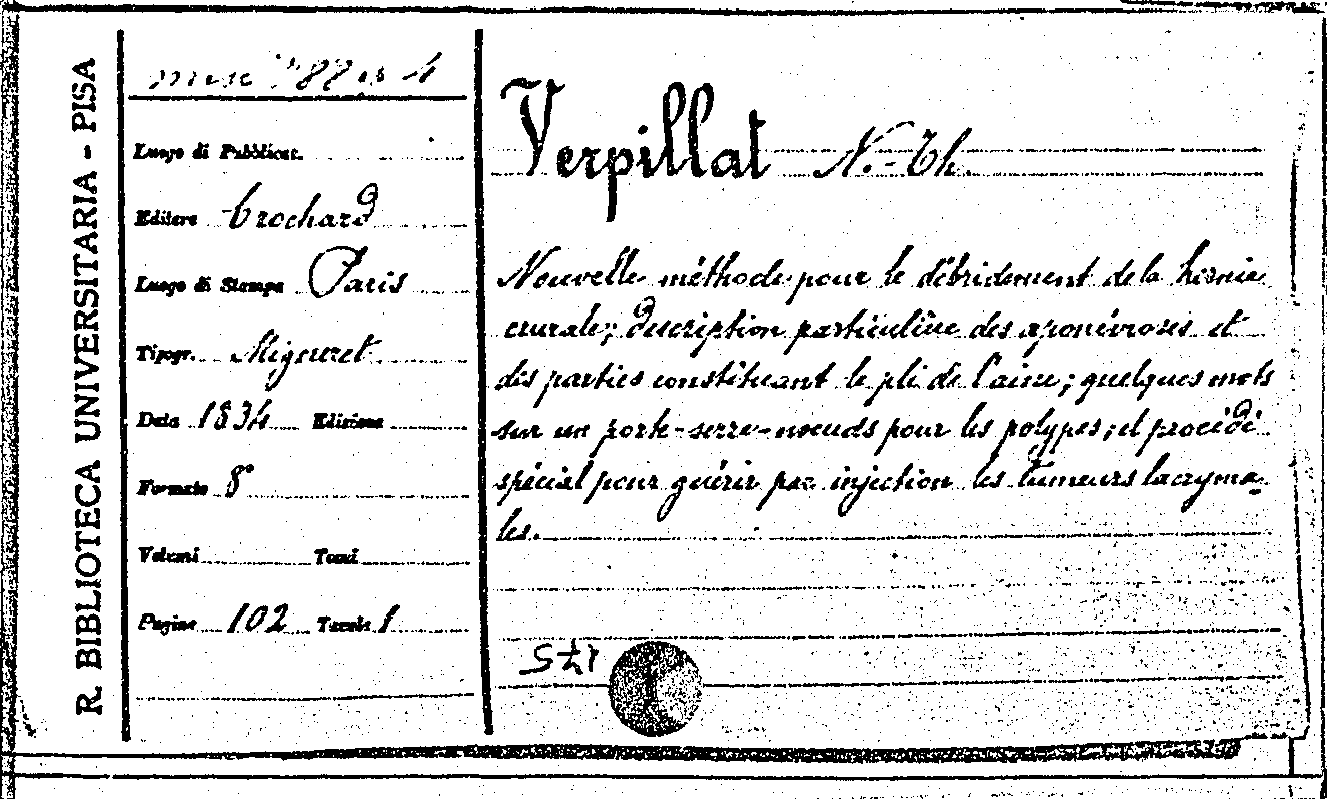 R. BIBLIOTECA UNIVERSITARIA - PISA
misc 788 is 4
Luogo di Pubblicaz.
Editore Crochard
Luogo di Stampa Paris
Tipogr. Migneret
Data 1834 Edizione
Formato 8°
Volumi Tomi
Pagine 102 Tavole 1
Verpillat N.-Th.
Nouvelle méthode pour le débridement de la hernie
crurale; description particulière des aponévroses et
des parties constituant le pli de l'aine; quelques mots
sur un porte-serre-noeuds pour les polypes; et procédé
spécial pour guérir par injection les tumeurs lacryma-
les.